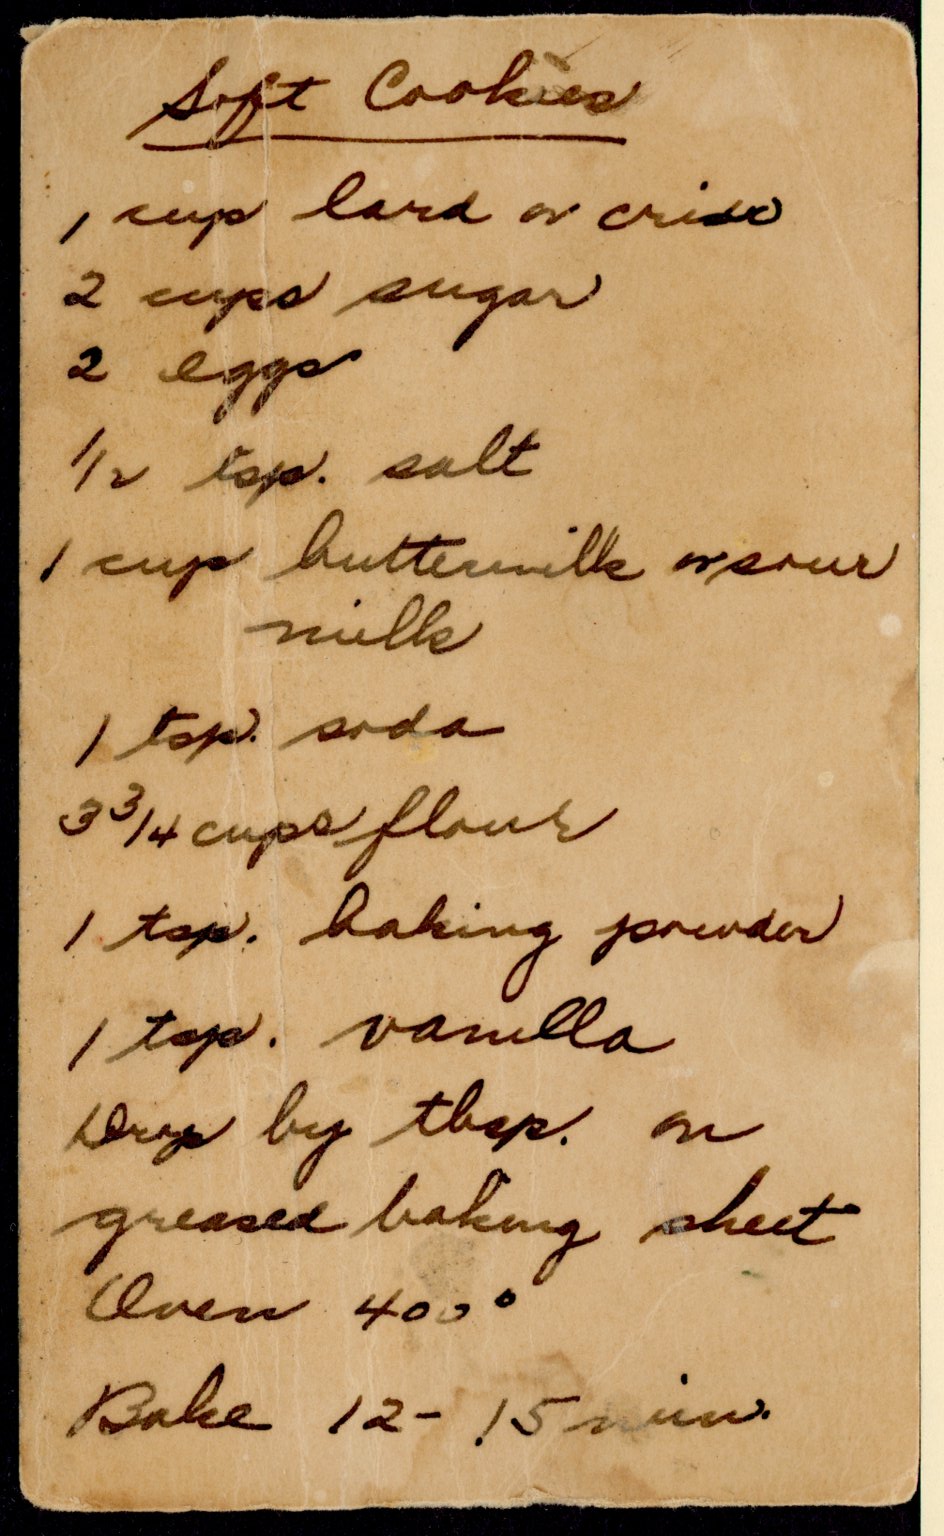 Soft Cookies
1 cup lard or crisco
2 cups sugar
2 eggs
1/2 tsp. salt
1 cup buttermilk or sour
milk
1 tsp. soda
3 3/4 cups flour
1 tsp. baking powder
1 tsp. vanilla
Drop by tbsp. on
greased baking sheet
Oven 400°
Bake 12 - 15 min.